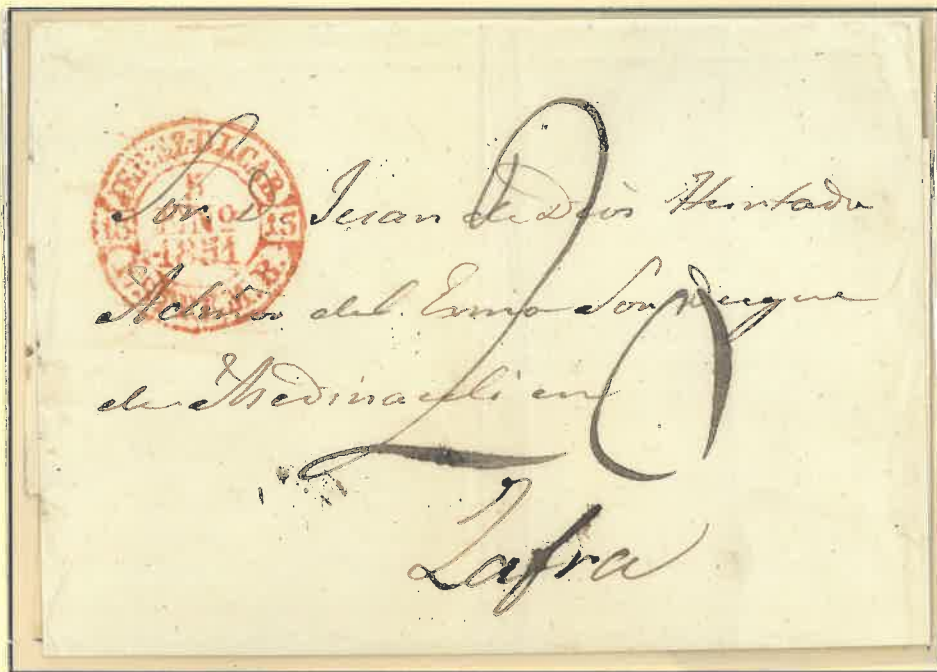 JEREZ D.L. CAB.
5
ENº
1851
15 15
Sor. D. Juan de Dios Hurtado
Admor. del Exmo Sor Duque
de Medinaceli en
20
Zafra